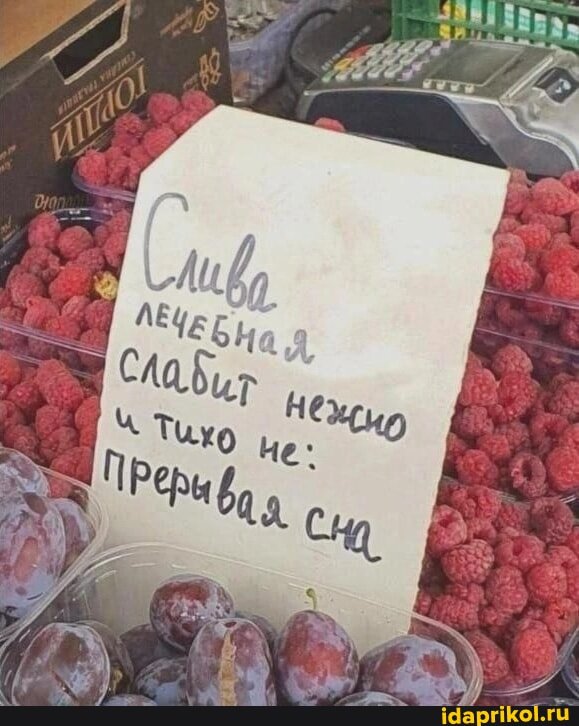 ГОРДІЙ
Слива
лечебная
слабит нежно
и тихо не:
прерывая сна
idaprikol.ru